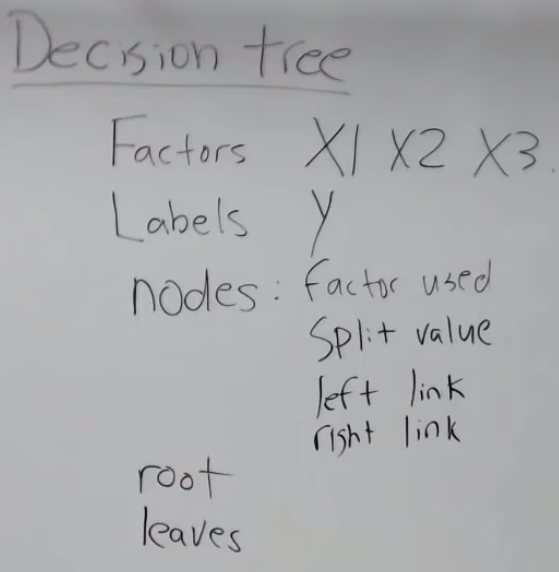 Decision tree
Factors X1 X2 X3.
Labels y
nodes: factor used
Split value
left link
right link
root
leaves